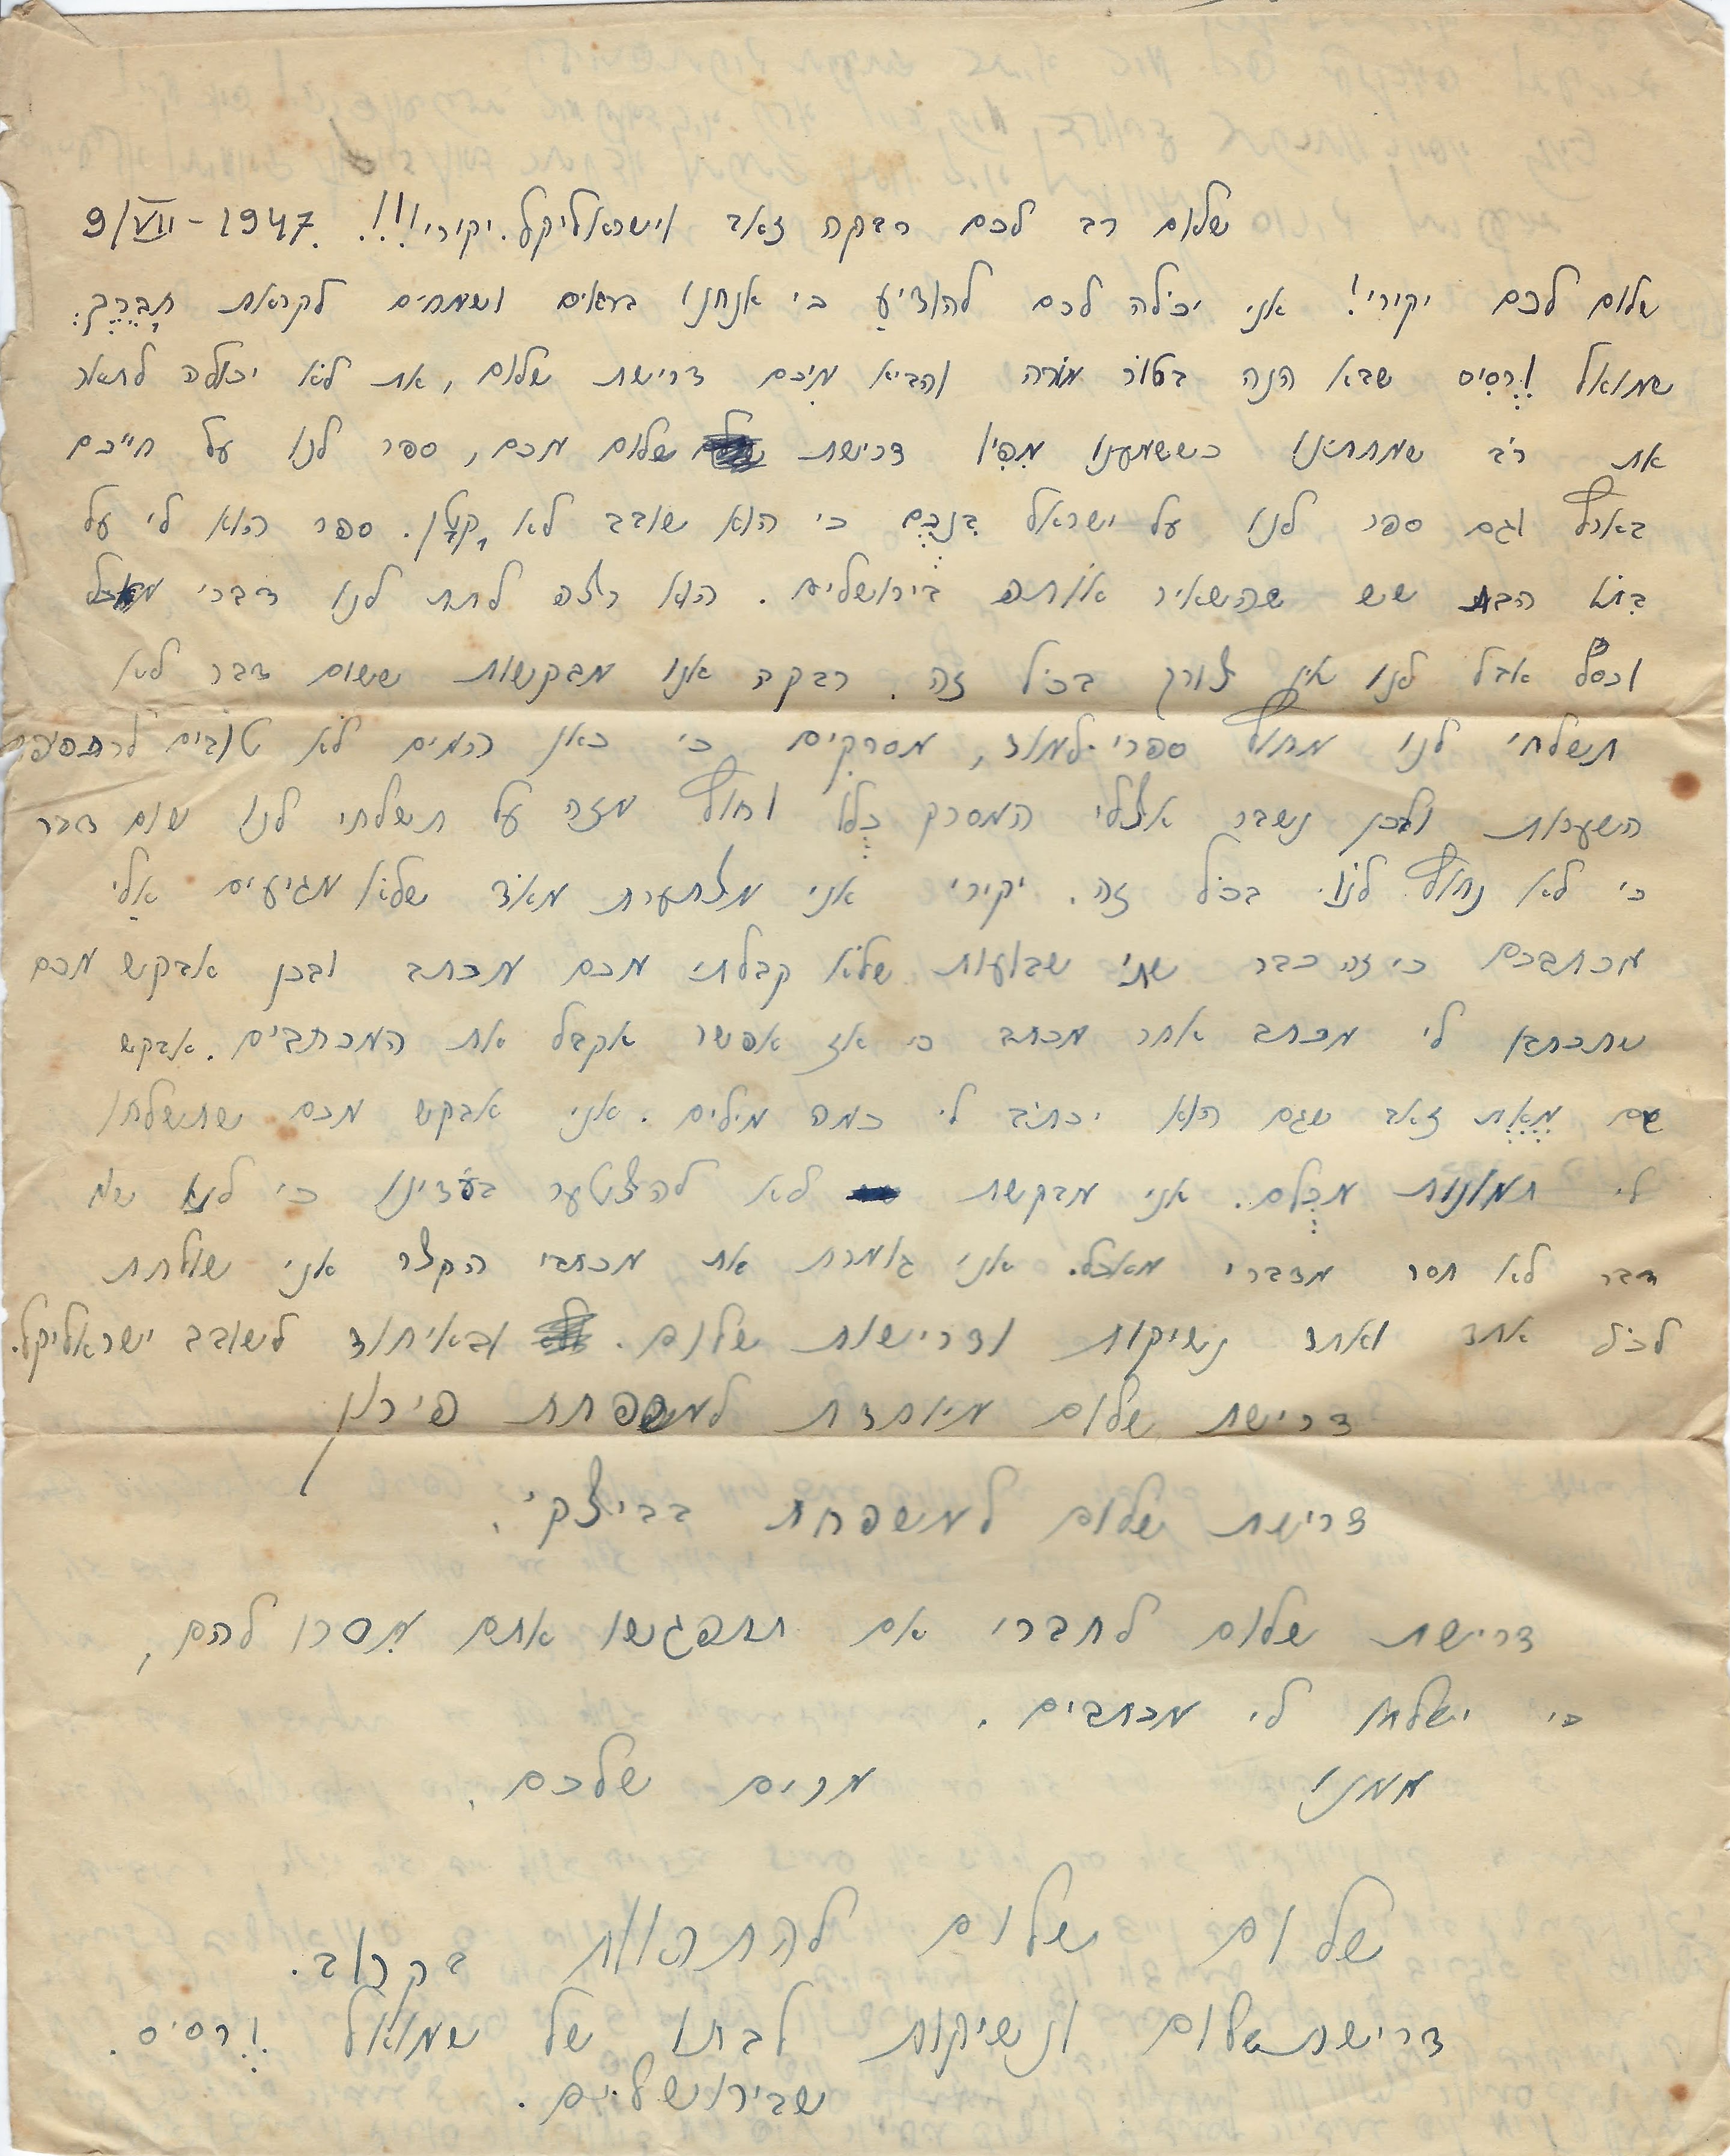 שלום רב לכם רבקה זאב וישראליקל. יקורי!!! 9/VII-1947.
שלום לכם יקירי! אני יכולה לכם להודיע כי אנחנו בראים ושמחים לקראת חֲבֵרֵךְ.
שמואל וֶרְסִיס שבא הנה בטור מורה והביא מִכם דרישת שלום, את לא יכולה לתאר
את רב שמחתנו כששמענו מִפִּיו דרישת שלום מכם, ספר לנו על חייכם
בארץ וגם ספר לנו על ישראל בְּנְכֶם כי הוא שובב לא קָטָן. ספר הוא לי על
בִּתּוֹ הבת שש שהשאיר אותה בירושלים. הוא רצה לתת לנו דברי מאכל
וכסף אבל לנו אין צורך בכל זה. רבקה אנו מבקשות ששום דבר לא
תשלחי לנו מחוץ ספרי-למוד, מסרקים כי כאן המים לא טובים לחפיפת
השערות ולכן נשבר אצלי המסרק כֻּלּוֹ וחוץ מזה על תשלחי לנו שום דבר
כי לא נחוץ לנו בכל זה. יקירי אני מצתערת מאוד שלא מגיעים אֵלַי
מכתבכם כי זה כבר שתי שבועות שלא קבלתי מכם מכתב ובכן אבקש מכם
שתכתבו לי מכתב אחר מכתב כי אז אפשר אקבל את המכתבים. אבקש
גם מֶאֶת זאב שגם הוא יכתוב לי כמה מילים. אני אבקש מכם שתשלחו
לי תמונות מכֻּלם. אני מבקשת לא להצטער בעדינו כי לנו שום
דבר לא חסר מדברי מאכל. אני גומרת את מכתבי הקצר אני שולחת
לכל אחד ואחד נשיקות ודרישות שלום. ובאיחוד לשובב ישראליקל.
דרישת שלום מיוחדת למשפחת פירון
דרישת שלום למשפחת בביצקי.
דרישת שלום לחברי אם תתפגשו אתם מִסרו להם,
כי ישלחו לי מכתבים.
ממני מרים שלכם.
שלום שלום להתראות בקרוב.
דרישת שלום ונשיקות לבתו של שמואל וֶרסיס.
שבירושלים.